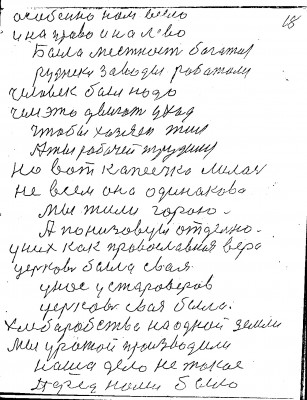 особенно нам было
и на право и на лево
18
Была местност богатая
рудники заводы работали
человек был надо
чтобы хазяен жил
А ты рабочей трудись
Но вот капеечка милая
не всем она одинакова
Мы жили горою.
А понизовци отдельно.
у них как православная вера
церковь былла свая
у нос у староверов
церковь свая была.
Хлебаробство на одной земли
Мы урожай производили
наша дело не такое
перед нами было